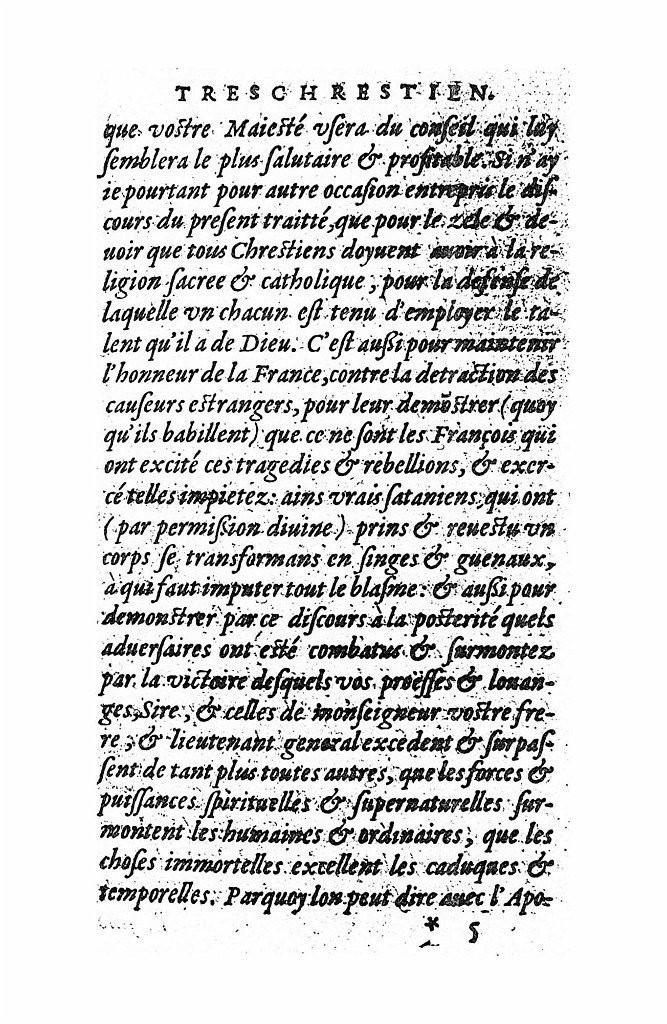 TRESCHRESTIEN.
que vostre Maiesté vsera du conseil qui luy
semblera le plus salutaire & profitable. Si n'ay
ie pourtant pour autre occasion entrepris le dis-
cours du present traitté, que pour le zele & de-
uoir que tous Chrestiens doyuent auoir à la re-
ligion sacree & catholique, pour la defense de
laquelle vn chacun est tenu d'employer le ta-
lent qu'il a de Dieu. C'est aussi pour maintenir
l'honneur de la France, contre la detraction des
causeurs estrangers, pour leur demõstrer (quoy
qu'ils babillent) que ce ne sont les François qui
ont excité ces tragedies & rebellions, & exer-
cé telles impietez: ains vrais sataniens, qui ont
(par permißion diuine) prins & reuestu vn
corps se transformans en singes & guenaux,
à qui faut imputer tout le blasme: & außi pour
demonstrer par ce discours à la posterité quels
aduersaires ont esté combatus & surmontez
par la victoire desquels vos proësses & louan-
ges, Sire, & celles de monseigneur vostre fre-
re, & lieutenant general excedent & surpas-
sent de tant plus toutes autres, que les forces &
puissances spirituelles & supernaturelles sur-
montent les humaines & ordinaires, que les
choses immortelles excellent les caduques &
temporelles. Parquoy lon peut dire auec l'Apo-
* 5